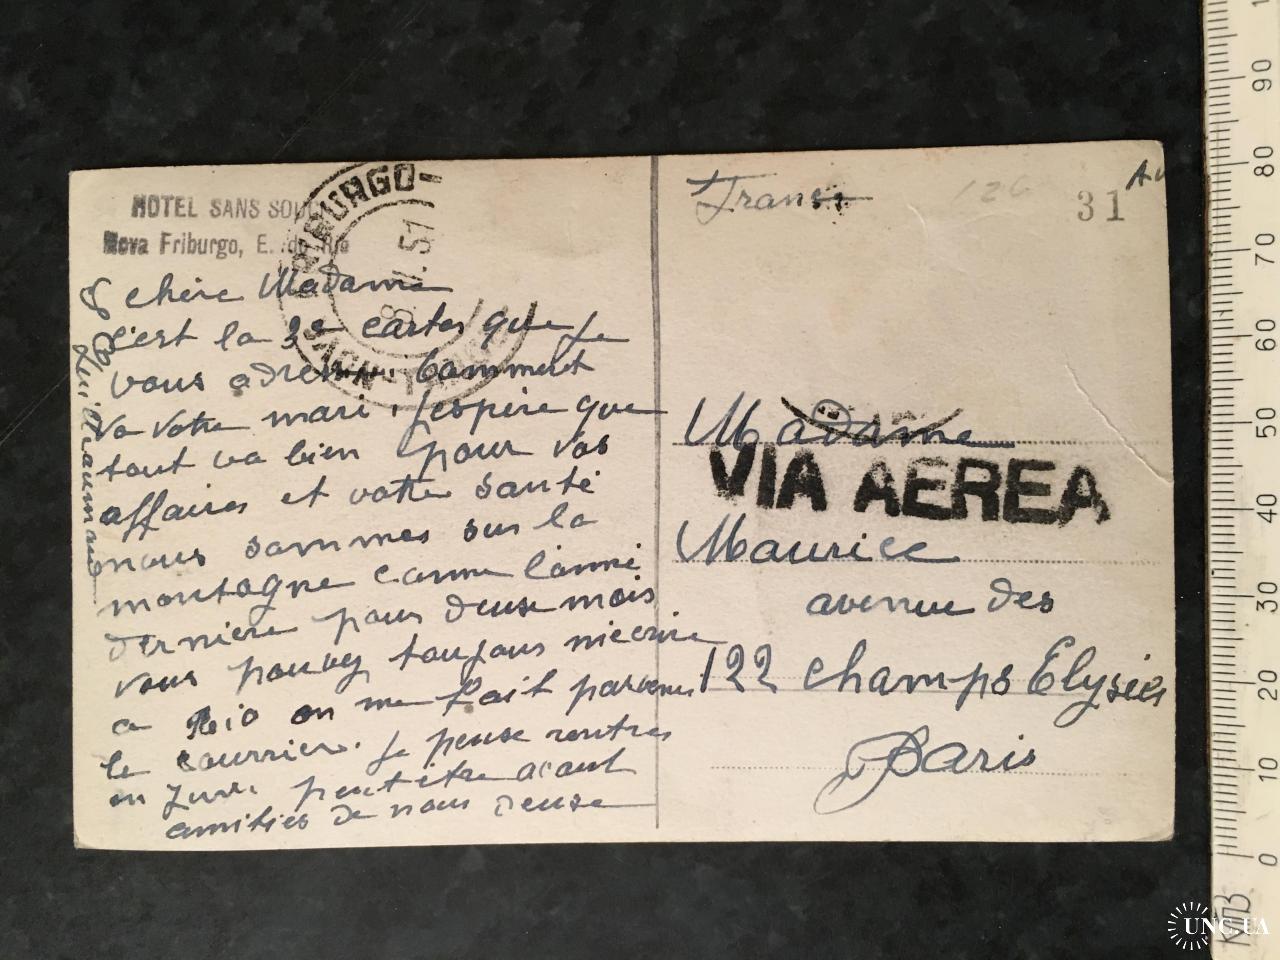 HOTEL SANS SOUCI
Nova Friburgo, E. do Rio
FRIBURGO
chère Madame
c'est la 3e cartes que je
vous adresse. Comment
va votre mari. j'espère que
tout va bien pour vos
affaires et votre santé
nous sommes sur la
montagne comme l'année
dernière pour deuse mois
vous pouvez toujours m'écrire
a Rio on me fait parvenir
le courrier. je pense rentrer
en juin peut être avant
amitiés de nous deuse
31
Madame
VIA AEREA
Maurice
avenue des
122 champs Elysées
Paris
0 10 20 30 40 50 60 70 80 90
UNC.UA